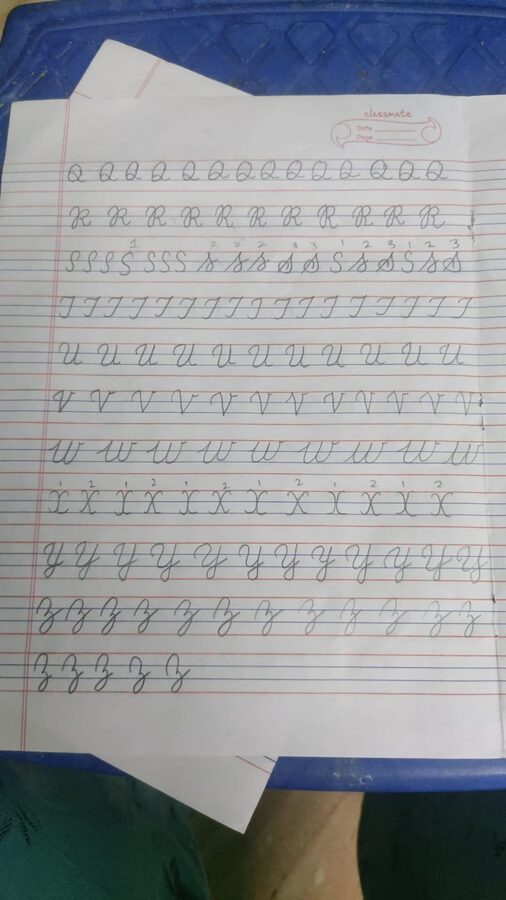 classmate
Date
Page
Q Q Q Q Q Q Q Q Q Q Q Q Q Q
R R R R R R R R R R R
1 2 2 2 3 3 1 2 3 1 2 3
S S S S S S S S S S S S S S S S S S
T T T T T T T T T T T T T T T T T
U U U U U U U U U U U
V V V V V V V V V V V V
W W W W W W W W W
1 2 1 2 1 2 1 2 1 2 1 2
X X X X X X X X X X X X
Y Y Y Y Y Y Y Y Y Y Y Y
Z Z Z Z Z Z Z Z Z Z Z Z
Z Z Z Z Z